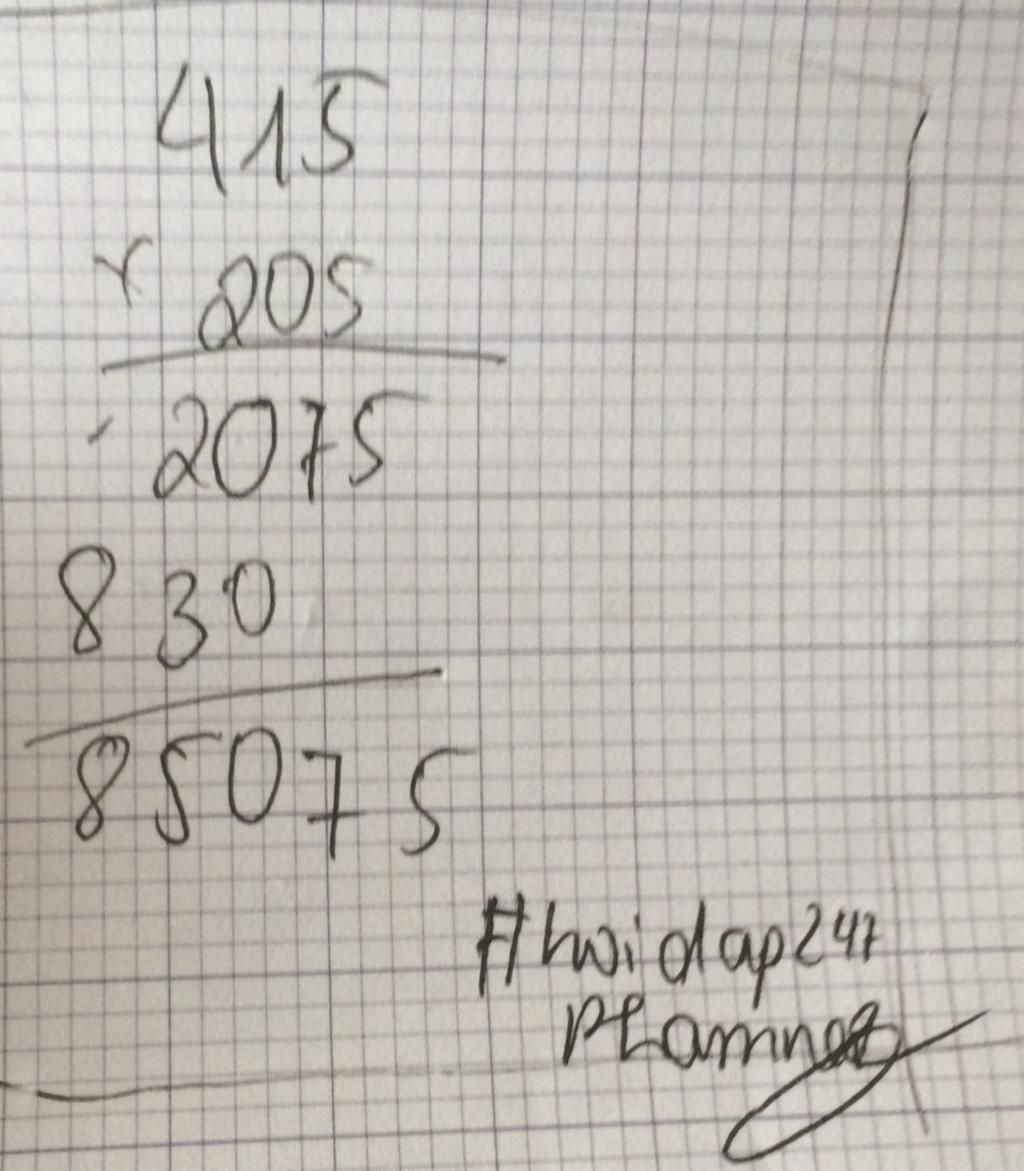 415
x 205
2075
830
85075
#hoidap247